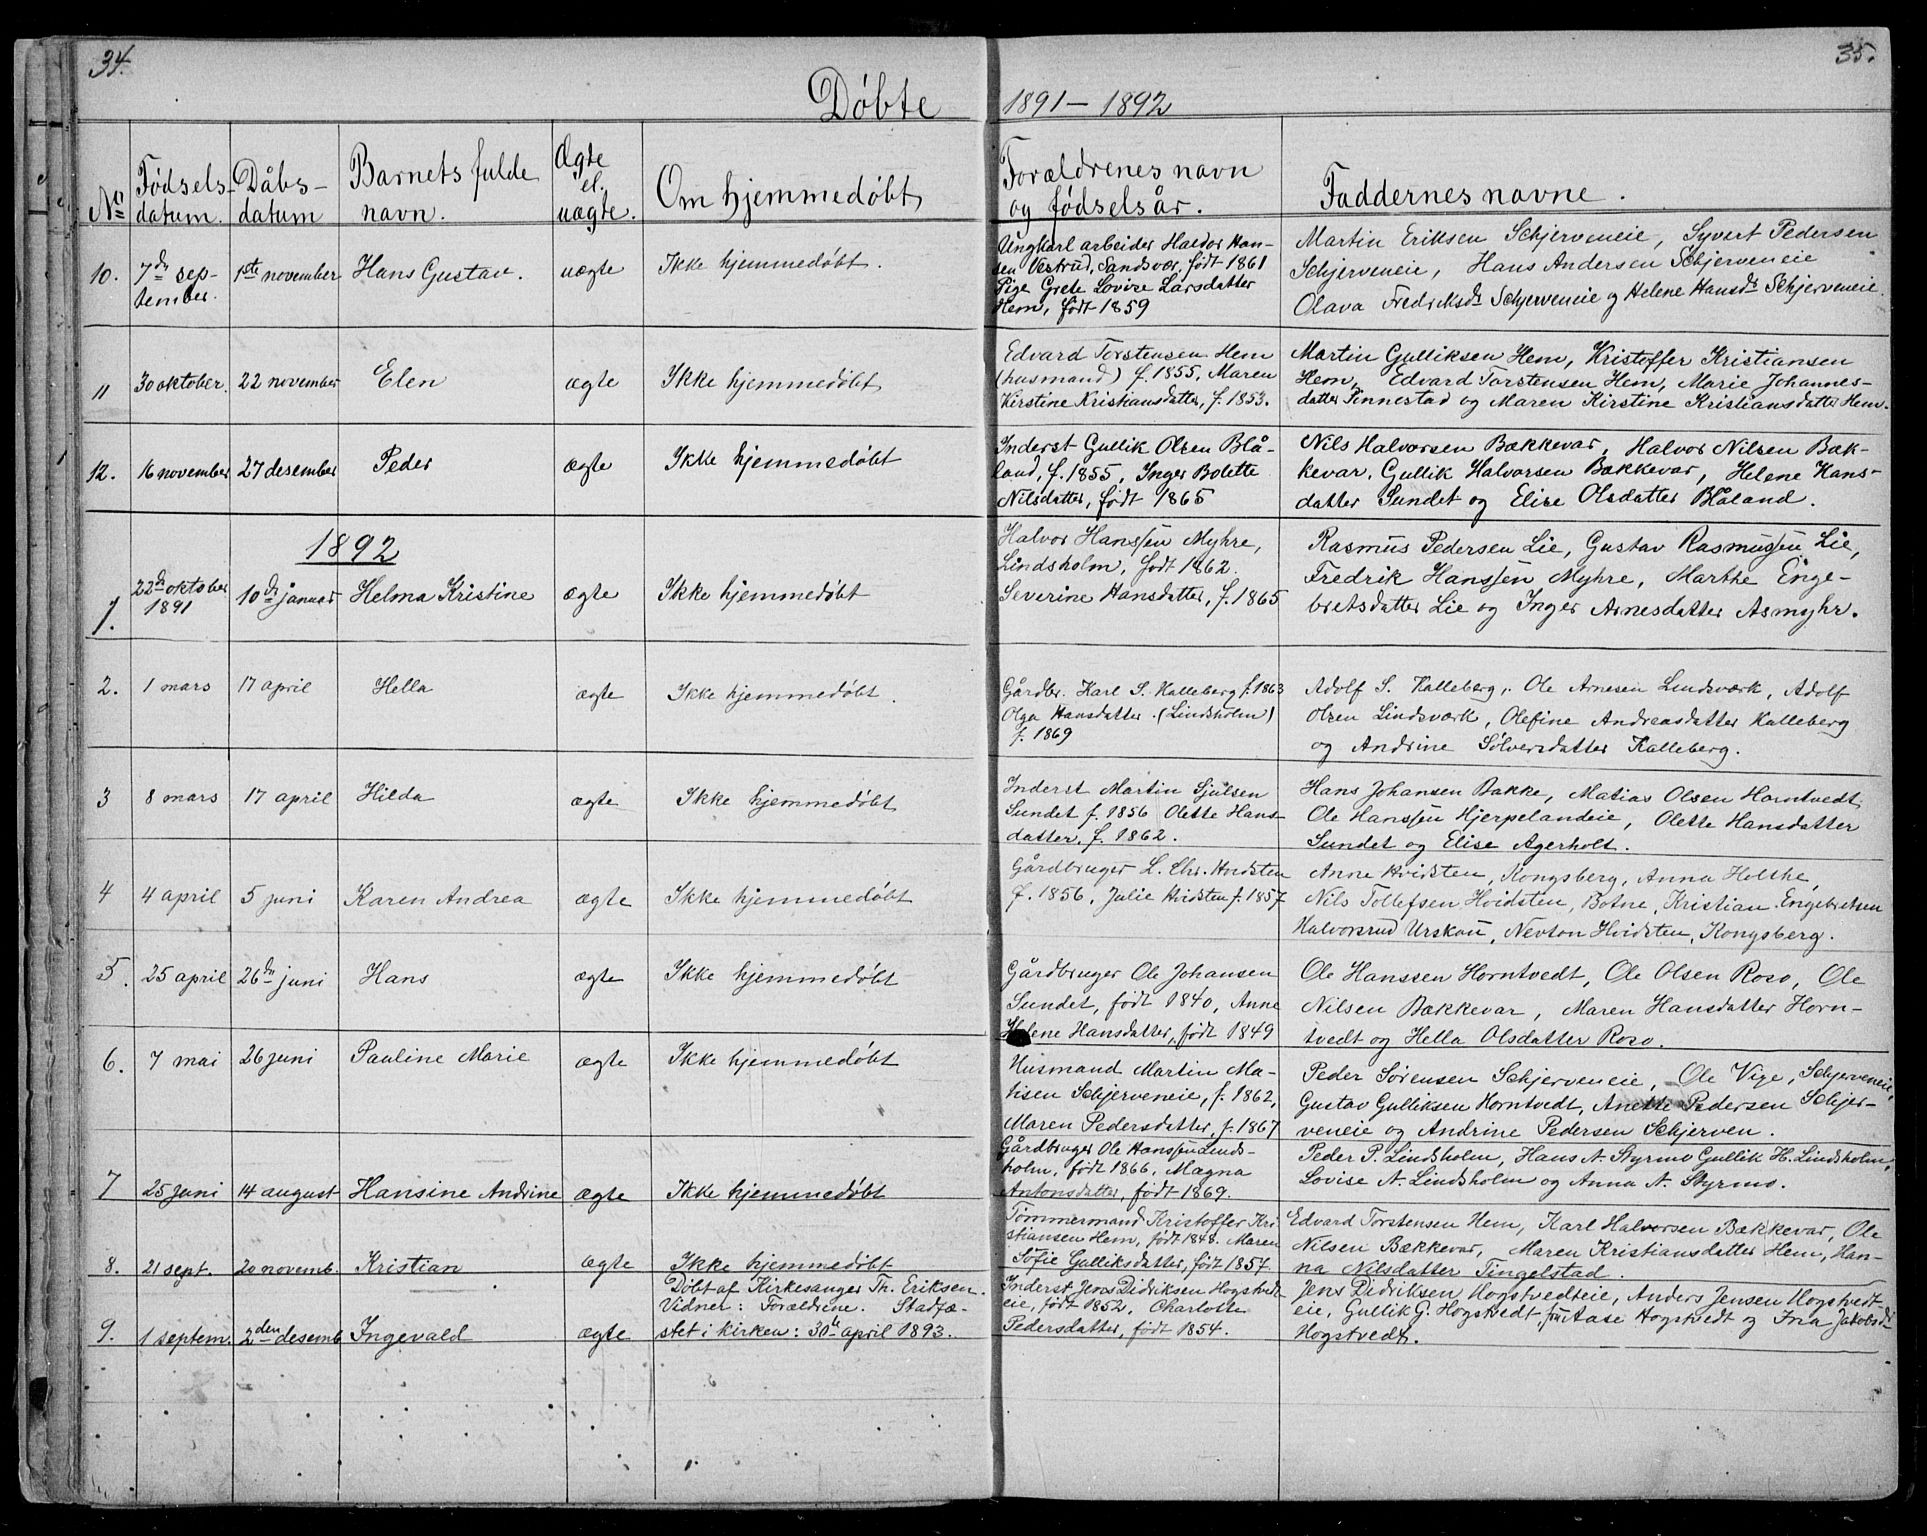 34.
35.
Døbte 1891–1892
No
Fødsels-
datum.
Dåbs-
datum
Barnets fulde
navn.
Ægte
el.
uægte.
Om hjemmedøbt
Forældrenes navn
og fødselsår.
Faddernes navne.
10.
7de sep-
tember.
1ste november
Hans Gustav.
uægte
Ikke hjemmedøbt.
Ungkarl arbeider Haldor Han-
sen Vestrud, Sandsvær, født 1861
Pige Grete Lovise Larsdatter
Hem, født 1859
Martin Eriksen Schjerveneie, Syvert Pedersen
Schjerveneie, Hans Andersen Schjerveneie
Olava Fredriksdr Schjerveneie og Helene Hansdr Schjerveneie
11
30 oktober.
22 november
Elen
ægte
Ikke hjemmedøbt
Edvard Torstensen Hem
(husmand) f. 1855, Maren
Kirstine Kristiansdatter, f. 1853.
Martin Gulliksen Hem, Kristoffer Kristiansen
Hem, Edvard Torstensen Hem, Marie Johannes-
datter Linnestad og Maren Kirstine Kristiansdatter Hem.
12.
16 november
27 desember
Peder
ægte
Ikke hjemmedøbt
Inderst Gullik Olsen Blå-
land, f. 1855, Inger Bolette
Nilsdatter, født 1865
Nils Halvorsen Bækkevar, Halvor Nilsen Bæk-
kevar, Gullik Halvorsen Bækkevar, Helene Hans-
datter Sundet og Elise Olsdatter Blåland.
1892
1.
22de oktober
1891
10de januar
Helma Kristine
ægte
Ikke hjemmedøbt
Halvor Hanssen Myhre,
Lindsholm, født 1862.
Severine Hansdatter, f. 1865
Rasmus Pedersen Lie, Gustav Rasmussen Lie,
Fredrik Hanssen Myhre, Marthe Enge-
bretsdatter Lie og Inger Arnesdatter Asmyhr.
2.
1 mars
17 april
Hella
ægte
Ikke hjemmedøbt.
Gårdbr. Karl S. Kalleberg f. 1863
Olga Hansdatter. (Lindsholm)
f. 1869
Adolf S. Kalleberg, Ole Arnesen Lindsværk, Adolf
Olsen Lindsværk, Olefine Andreasdatter Kalleberg
og Andrine Sølversdatter Kalleberg.
3
8 mars
17 april
Hilda
ægte
Ikke hjemmedøbt
Inderst Martin Sjulsen
Sundet f. 1856 Olette Hans-
datter, f. 1862.
Hans Johansen Bakke, Matias Olsen Horntvedt,
Ole Hanssen Hjerpelandeie, Olette Hansdatter
Sundet og Elise Agerholt.
4
4 april
5 juni
Karen Andrea
ægte
Ikke hjemmedøbt
Gårdbruger L. Chr. Hvidsten
f. 1856, Julie Hvidsten f. 1857
Anne Hvidsten, Kongsberg, Anna Holthe,
Nils Tollefsen Hvidsten, Botne, Kristian Engebretsen
Halvorsrud Urskou, Nevton Hvidsten, Kongsberg.
5.
25 april
26de juni
Hans
ægte
Ikke hjemmedøbt
Gårdbruger Ole Johansen
Sundet, født 1840, Anne
Helene Hansdatter, født 1849
Ole Hanssen Horntvedt, Ole Olsen Roso, Ole
Nilsen Bækkevar, Maren Hansdatter Horn-
tvedt og Hella Olsdatter Roso.
6.
7 mai
26 juni
Pauline Marie
ægte
Ikke hjemmedøbt
Husmand Martin Ma-
tisen Schjerveneie, f. 1862,
Maren Pedersdatter, f. 1867
Peder Sørensen Schjerveneie, Ole Vige, Schjerveneie,
Gustav Gulliksen Horntvedt, Anette Pedersen Schjer-
veneie og Andrine Pedersen Schjerven.
7
25 juni
14 august
Hansine Andrine
ægte
Ikke hjemmedøbt
Gårdbruger Ole Hanssen Linds-
holm, født 1866, Magna
Antonsdatter, født 1869.
Peder P. Lindsholm, Hans A. Styrmo Gullik H. Lindsholm,
Lovise A. Lindsholm og Anna A. Styrmo.
8.
21 sept.
20 novemb.
Kristian
ægte
Ikke hjemmedøbt
Tømmermand Kristoffer Kri-
stiansen Hem, født 1848. Maren
Sofie Gulliksdatter, født 1857
Edvard Torstensen Hem, Karl Halvorsen Bækkevar, Ole
Nilsen Bækkevar, Maren Kristiansdatter Hem, Han-
na Nilsdatter Tingelstad.
9.
1 septem.
2den desemb.
Ingevald
ægte
Døbt af Kirkesanger Th. Eriksen.
Vidner: Forældrene. Stadfæ-
stet i kirken: 30te april 1893.
Inderst Jens Didriksen Hogstvedt-
eie, født 1852, Charlotte
Pedersdatter, født 1854.
Jens Didriksen Hogstvedteie, Anders Jensen Hogstvedt-
eie, Gullik G. Hogstvedt, fru Aase Hogstvedt og Fria Jakobsdr
Hogstvedt.